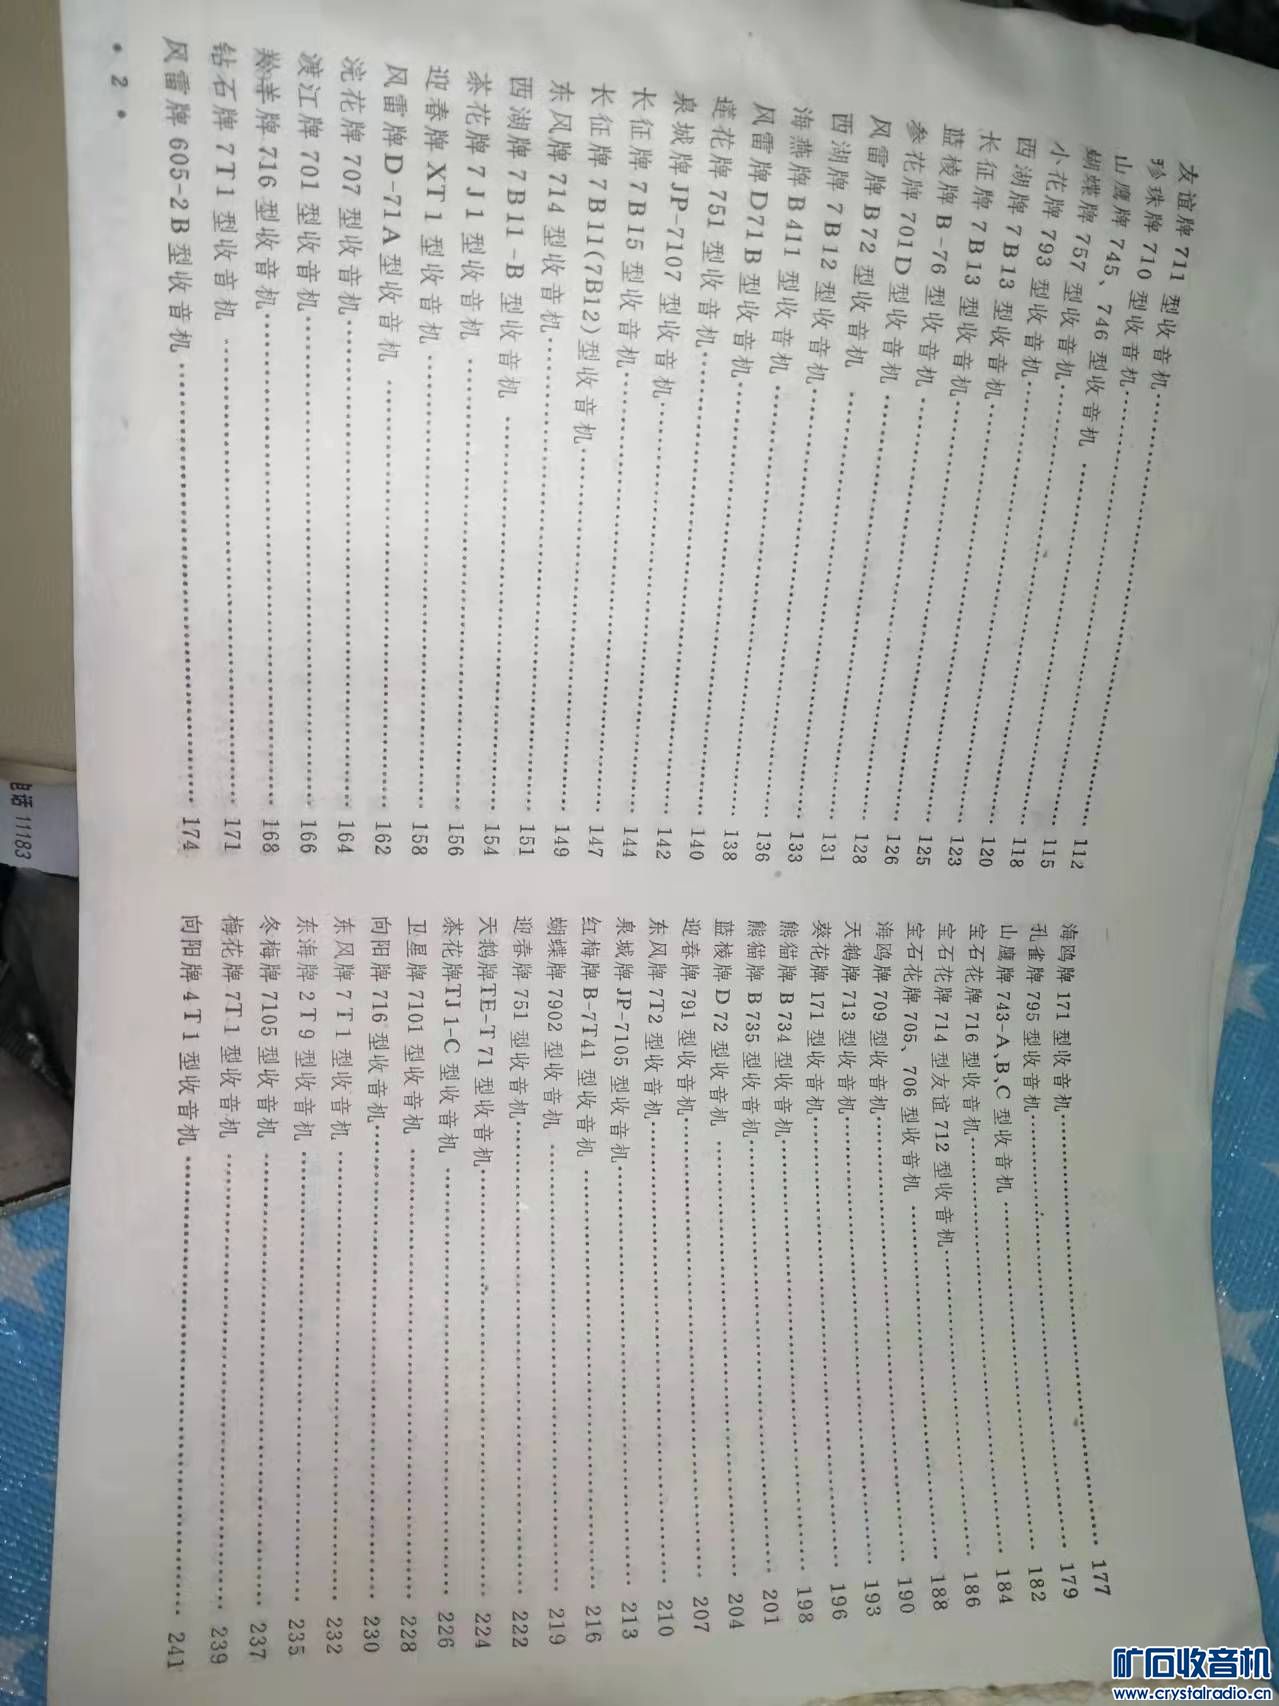 友谊牌 711 型收音机……112
珍珠牌 710 型收音机……115
山鹰牌 745、746 型收音机……118
蝴蝶牌 757 型收音机……120
小花牌 793 型收音机……123
西湖牌 7B13 型收音机……125
长征牌 7B13 型收音机……126
蓝棱牌 B-76 型收音机……128
参花牌 701D 型收音机……131
风雷牌 B72 型收音机……133
西湖牌 7B12 型收音机……136
海燕牌 B411 型收音机……138
风雷牌 D71B 型收音机……140
莲花牌 751 型收音机……142
泉城牌 JP-7107 型收音机……144
长征牌 7B15 型收音机……147
长征牌 7B11(7B12)型收音机……149
东风牌 714 型收音机……151
西湖牌 7B11-B 型收音机……154
茶花牌 7J1 型收音机……156
迎春牌 XT1 型收音机……158
风雷牌 D-71A 型收音机……162
浣花牌 707 型收音机……164
渡江牌 701 型收音机……166
羚羊牌 716 型收音机……168
钻石牌 7T1 型收音机……171
风雷牌 605-2B 型收音机……174
• 2 •
海鸥牌 171 型收音机……177
孔雀牌 795 型收音机……179
山鹰牌 743-A、B、C 型收音机……182
宝石花牌 716 型收音机……184
宝石花牌 714 型友谊 712 型收音机……186
宝石花牌 705、706 型收音机……188
海鸥牌 709 型收音机……190
天鹅牌 713 型收音机……193
葵花牌 171 型收音机……196
熊猫牌 B734 型收音机……198
熊猫牌 B735 型收音机……201
蓝棱牌 D72 型收音机……204
迎春牌 791 型收音机……207
东风牌 7T2 型收音机……210
泉城牌 JP-7105 型收音机……213
红梅牌 B-7T41 型收音机……216
蝴蝶牌 7902 型收音机……219
迎春牌 751 型收音机……222
天鹅牌 TE-T71 型收音机……224
茶花牌 TJ1-C 型收音机……226
卫星牌 7101 型收音机……228
向阳牌 716 型收音机……230
东风牌 7T1 型收音机……232
东海牌 2T9 型收音机……235
冬梅牌 7105 型收音机……237
梅花牌 7T1 型收音机……239
向阳牌 4T1 型收音机……241
电话 11183
矿石收音机
www.crystalradio.cn